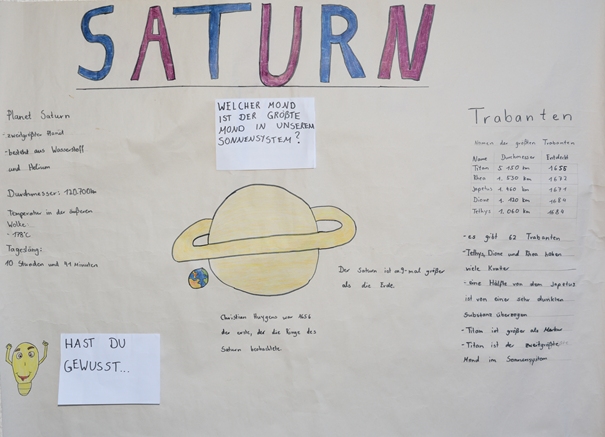 SATURN
Planet Saturn
- zweitgrößter Planet
- besteht aus Wasserstoff
und Helium
Durchmesser: 120.700km
Temperatur in der äußeren
Wolke
-178°C
Tageslänge:
10 Stunden und 41 Minuten
WELCHER MOND
IST DER GRÖßTE
MOND IN UNSEREM
SONNENSYSTEM?
Der Saturn ist 9-mal größer
als die Erde.
Christian Huygens war 1656
der erste, der die Ringe des
Saturn beobachtete.
HAST DU
GEWUSST...
Trabanten
Namen der größten Trabanten
Name Durchmesser Entdeckt
Titan 5 150 km 1655
Rhea 1. 530 km 1672
Japetus 1 460 km 1671
Dione 1. 120 km 1684
Tethys 1. 060 km 1684
- es gibt 62 Trabanten
- Tethys, Dione und Rhea haben
viele Krater
- eine Hälfte von dem Japetus
ist von einer sehr dunklen
Substanz überzogen
- Titan ist größer als Merkur
- Titan ist der zweitgrößte
Mond im Sonnensystem